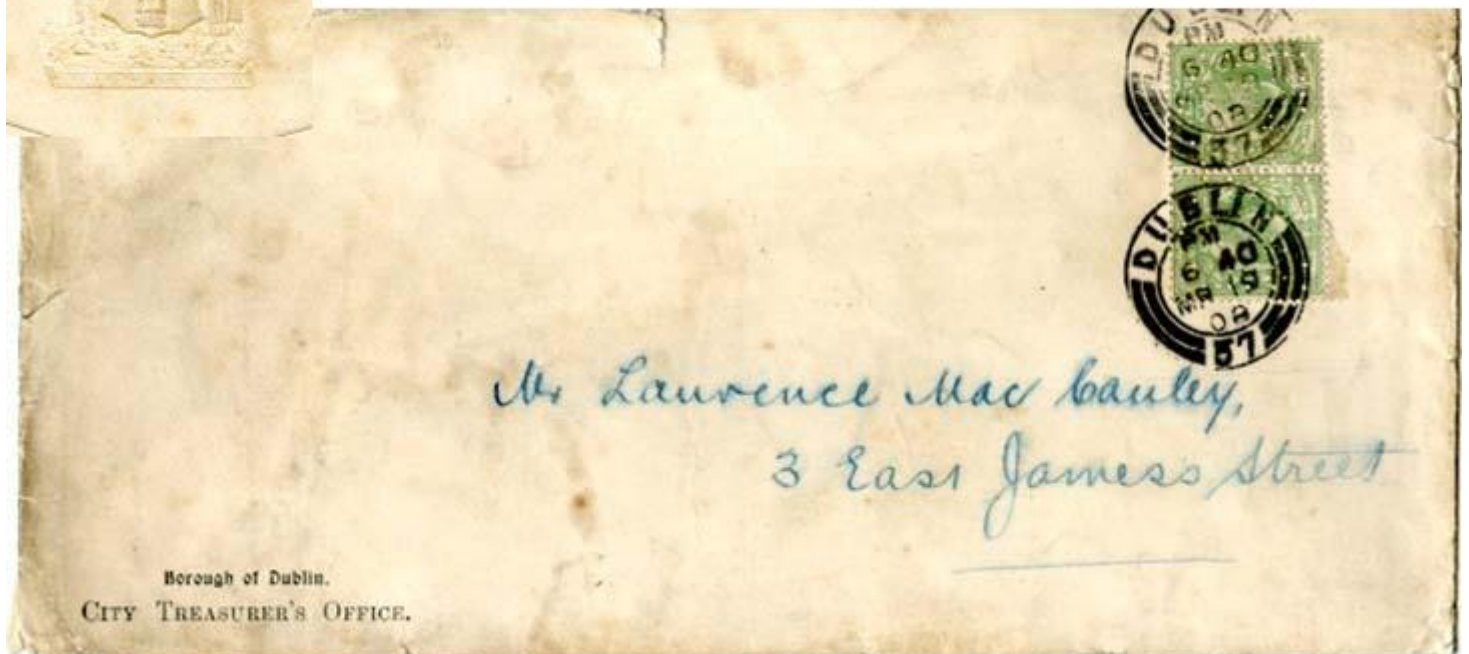 DUBLIN
PM
6 40
08
37
DUBLIN
PM
6 40
MR 19
08
37
Mr Laurence Mac Cauley,
3 East Jamess Street
Borough of Dublin.
CITY TREASURER'S OFFICE.